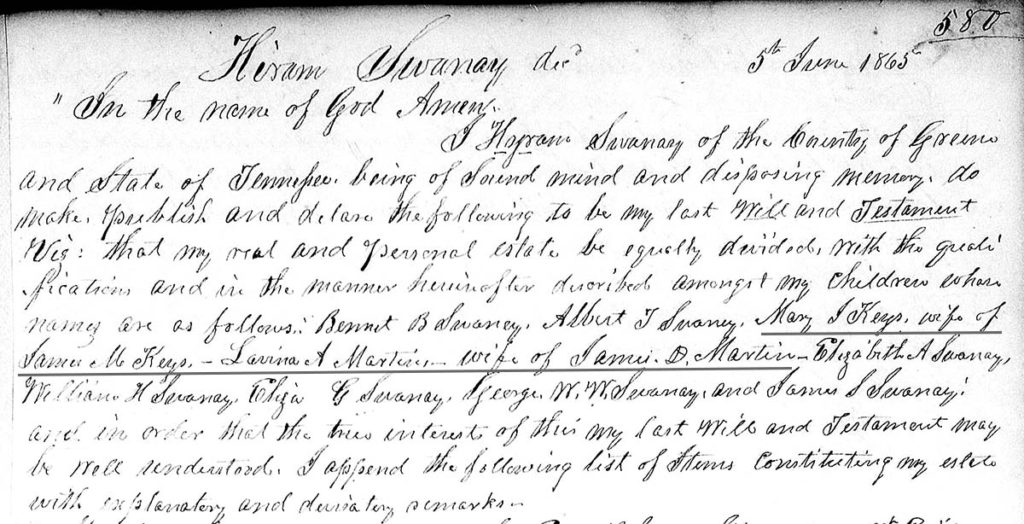 580
Hiram Swanay decd 5th June 1865
"In the name of God Amen.
I Hyram Swanay of the County of Greene
and State of Tennessee. being of Sound mind and disposing memory. do
make. publish and delare the following to be my last Will and Testament
Viz: that my real and personal estate be equally devided, with the quali
fications and in the manner hereinafter described amongst my children whose
names are as follows: Bennet B Swaney. Albert T Swaney. Mary J Keys. wife of
James M Keys. - Lavina A Martin. - wife of James. D. Martin - Elizabeth A Swanay,
William H Swanay. Eliza G Swanay. George. W. W. Swanay. and James S Swanay:
and in order that the true interests of this my last Will and Testament may
be well understood. I append the following list of Items constituting my estate
with explanatory and remarks -